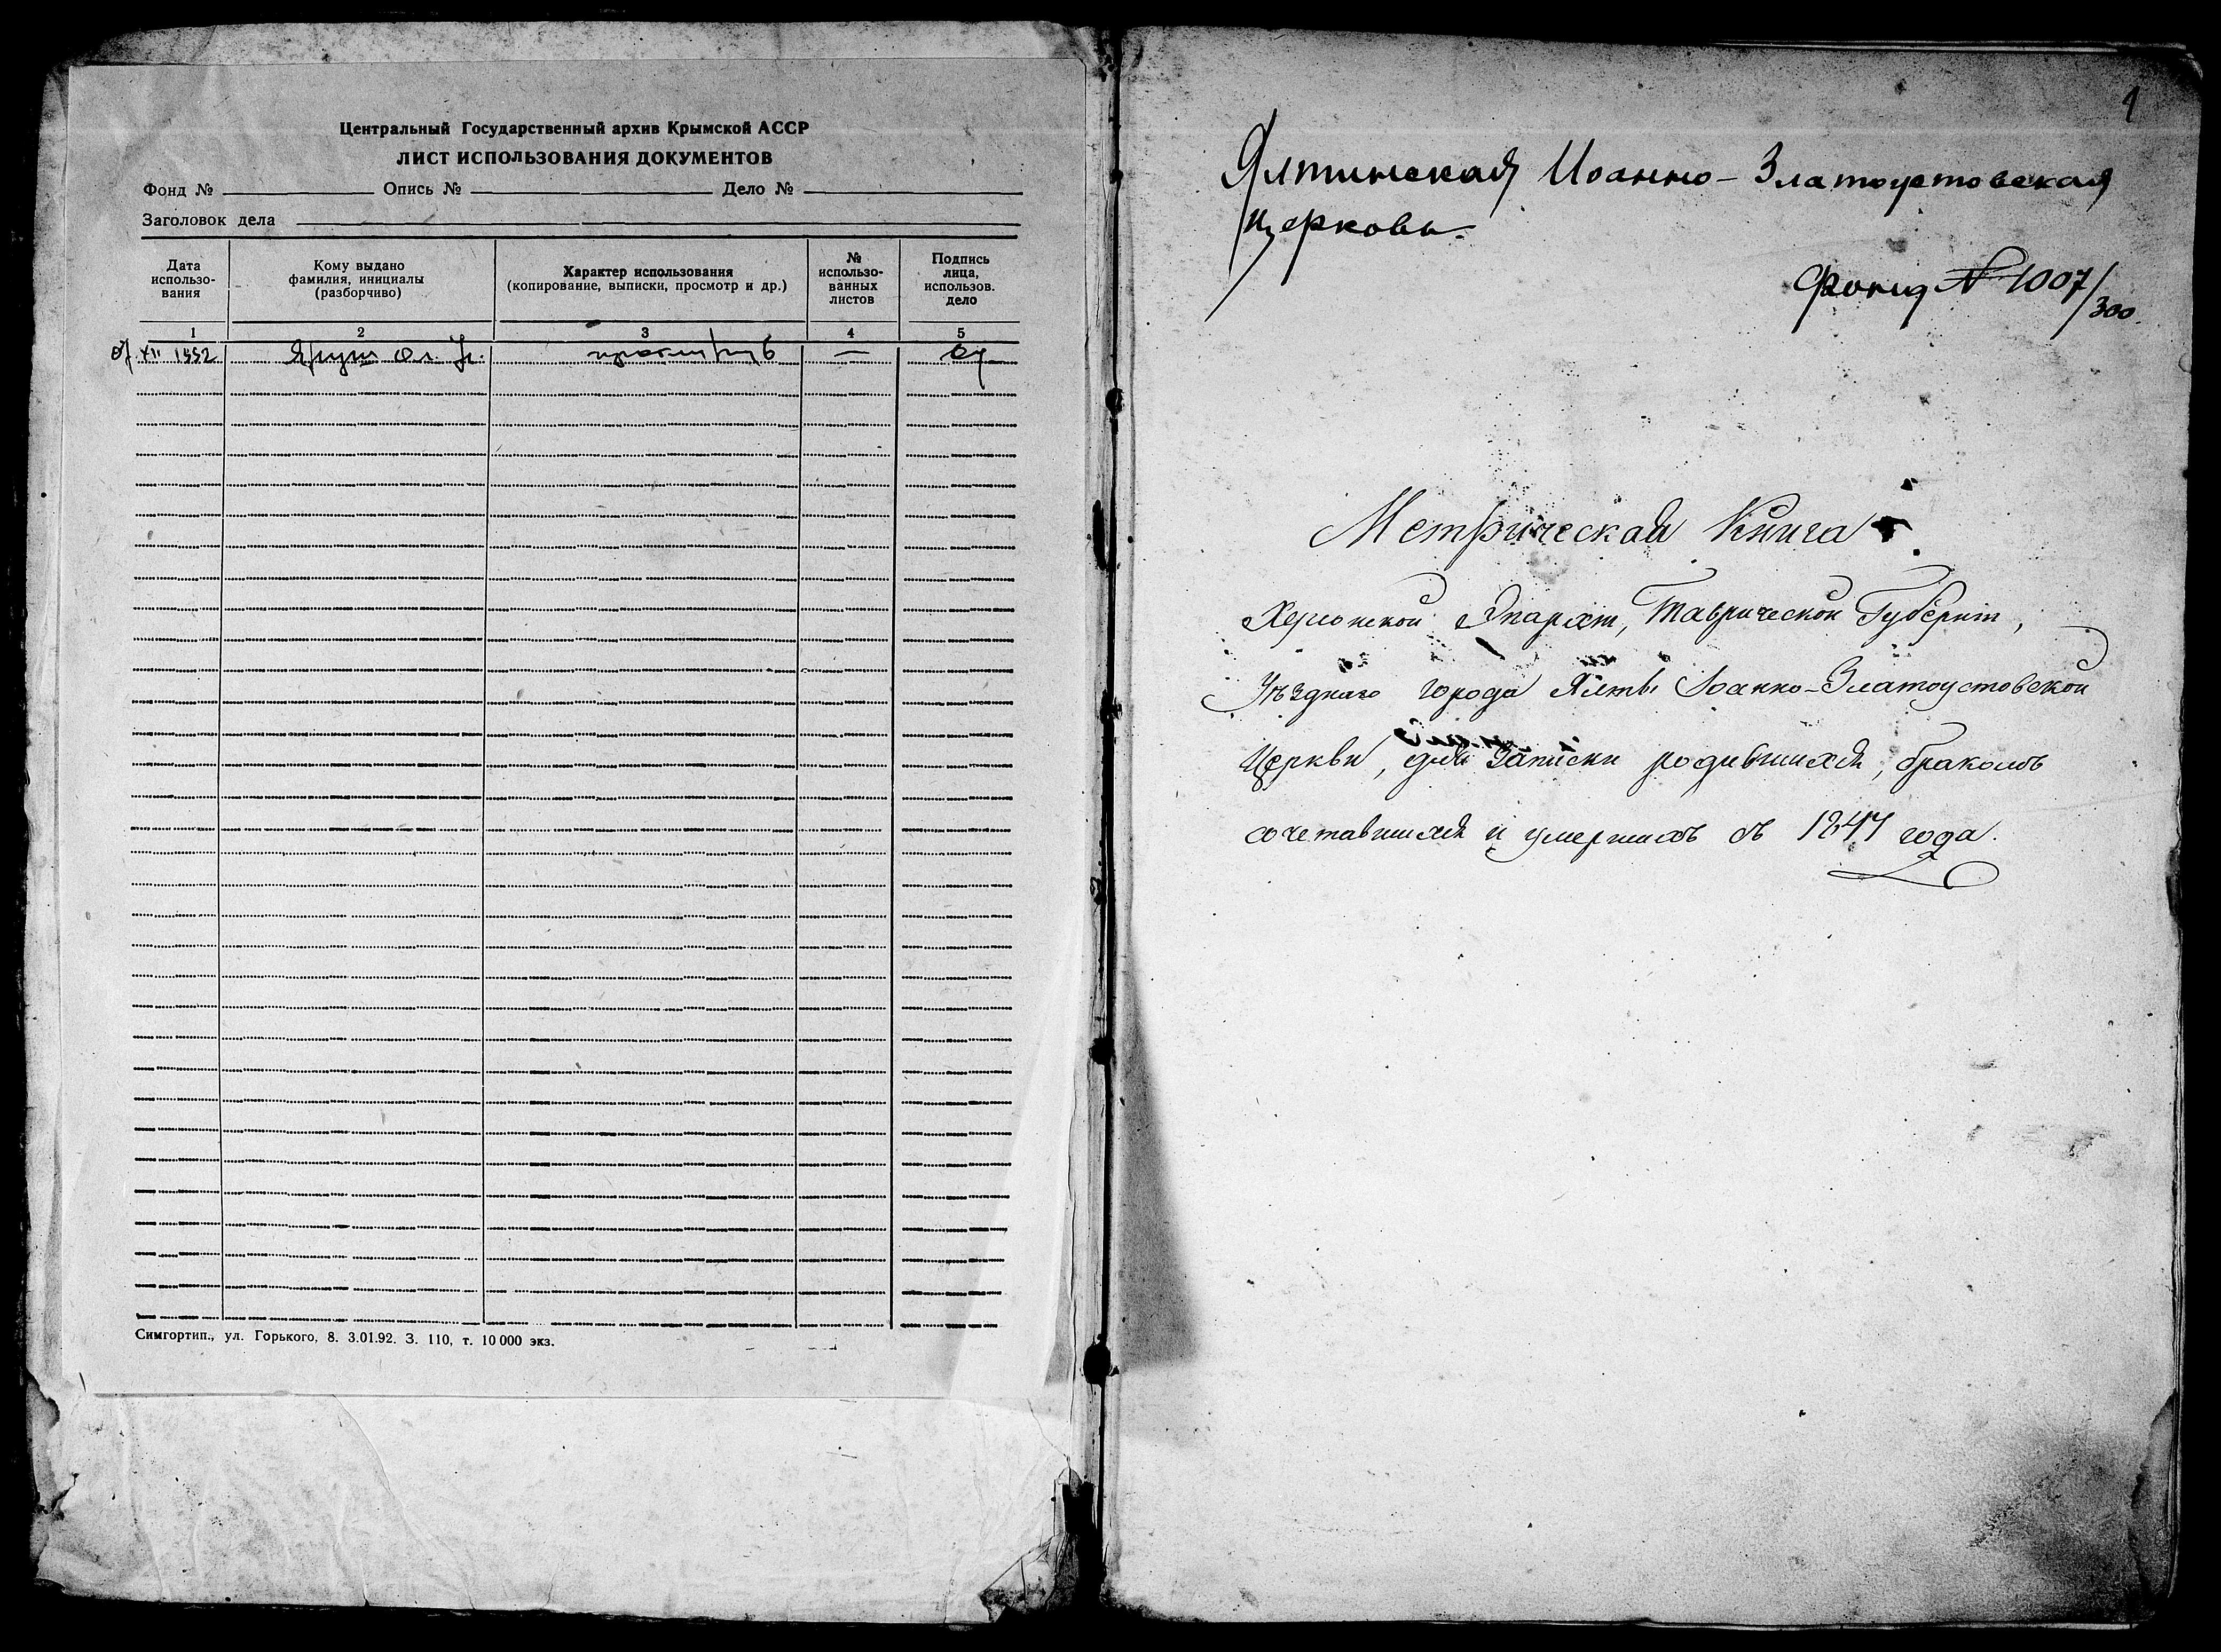 Центральный Государственный архив Крымской АССР
ЛИСТ ИСПОЛЬЗОВАНИЯ ДОКУМЕНТОВ
Фонд № Опись № Дело №
Заголовок дела
Дата использо-вания
Кому выдано фамилия, инициалы (разборчиво)
Характер использования (копирование, выписки, просмотр и др.)
№ использо-ванных листов
Подпись лица, использов. дело
1 2 3 4 5
XII 1992 —
Симгортип., ул. Горького, 8. 3.01.92. З. 110, т. 10 000 экз.
1
Ялтинская Иоанно-Златоустовская
церковь
Фонд № 1007/300
Метрическая Книга
Херсонской Епархіи, Таврической Губерніи,
Уѣзднаго города Ялты Іоанно-Златоустовской
Церкви, для записки родившихся, бракомъ
сочетавшихся и умершихъ съ 1847 года.